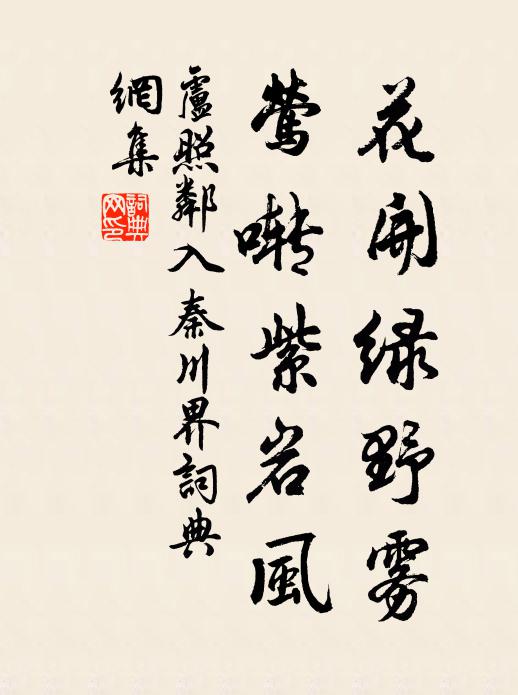 花開緑野雾
莺啭紫岩風
盧照鄰入秦川界詞典
網集
詞典
网印